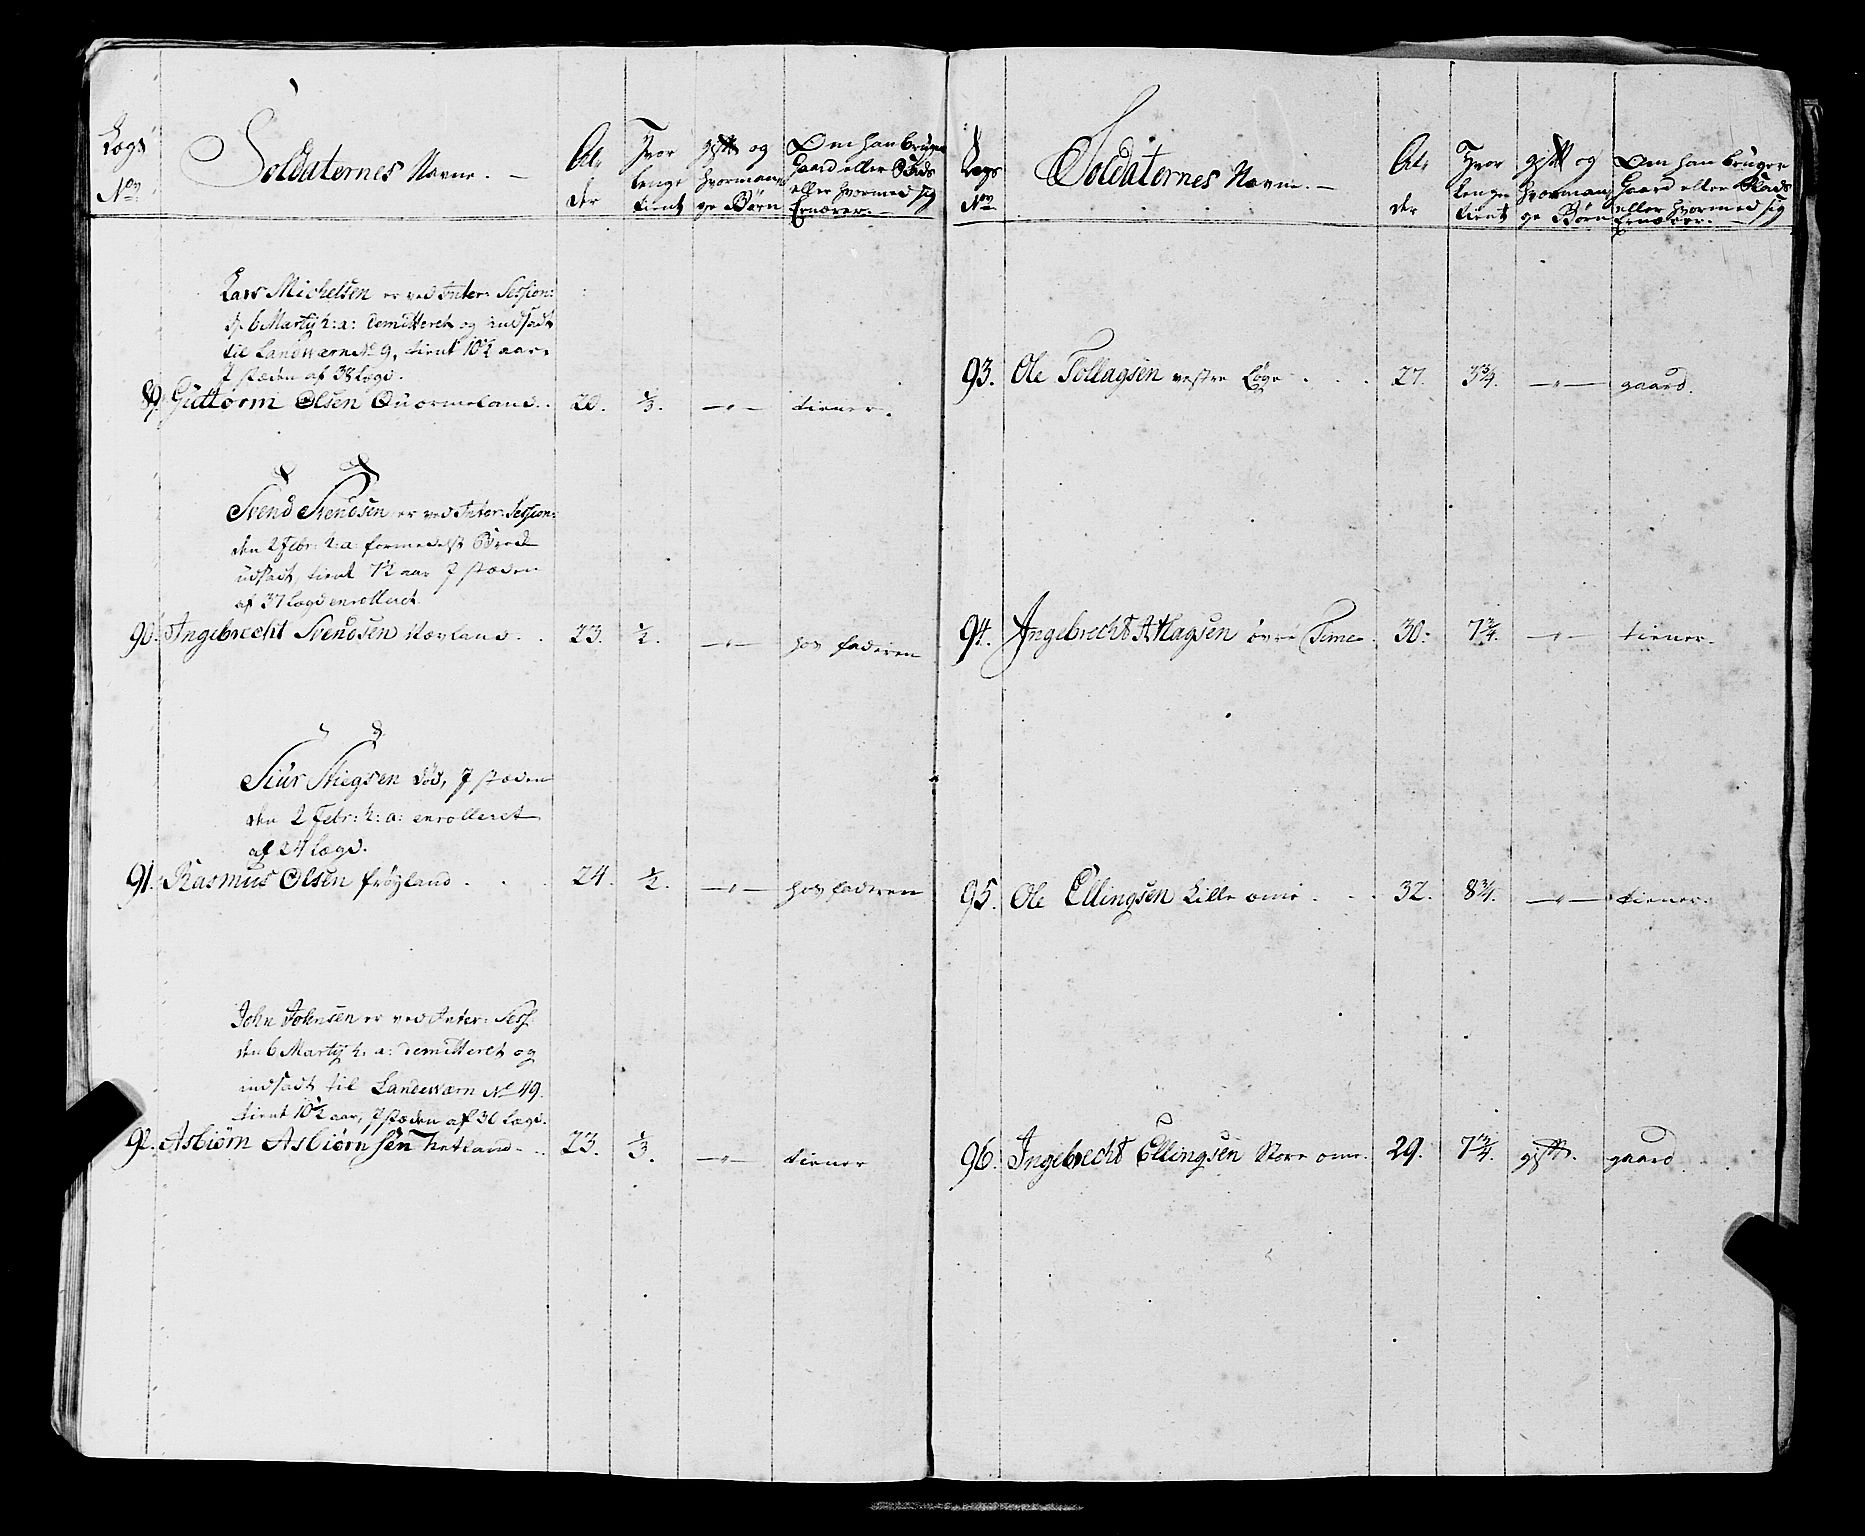 Lægs No. | Soldaternes Navne. | Al- der | Hvor lenge tient | gift og hvorman- ge Børn | Om han bruger Gaard eller Plads eller hvormed sig Ernærer.
Lars Michelsen er ved Inter: Session:
d. 6 Martÿ h: a: demitteret og indsadt
til Landværn No 9, tient 10½ aar,
I stæden af 38 Lægd.
89. Guttorm Olsen Quormeland. | 20. | ⅓. | —"— | tiener.
Svend Svendsen er ved Inter: Session:
den 2 Febr: h: a: formedelst Brod
udsadt, tient 7½ aar I stæden
af 37 Lægd enrolleret.
90. Ingebrecht Svendsen Røyland. | 23. | ½. | —"— | hos faderen
Siur Stiegsen død, I stæden
den 2 Febr: h: a: enrolleret
af 24 Lægd.
91. Rasmus Olsen frøyland. | 24. | ½. | —"— | hos faderen
John Johnsen er ved Inter: Sess:
den 6 Martÿ h. a: demitteret og
indsadt til Landeværn No 49.
tient 10½ aar, I stæden af 30 Lægd.
92. Asbiørn Asbiørnsen hetland. | 23. | ⅓. | —"— | tiener
Lægs No. | Soldaternes Navne. | Al- der | Hvor lenge tient | gift og hvorman- ge Børn | Om han bruger Gaard eller Plads eller hvormed sig Ernærer.
93. Ole Tollagsen vestre Løge | 27. | 3¾. | —"— | gaard.
94. Ingebrecht Atlagsen øvre Time | 30. | 7¾. | —"— | tiener.
95. Ole Ellingsen Lille ome | 32. | 8¾. | —"— | tiener.
96. Ingebrecht Ellingsen Store ome. | 29. | 7¾. | gift. | gaard